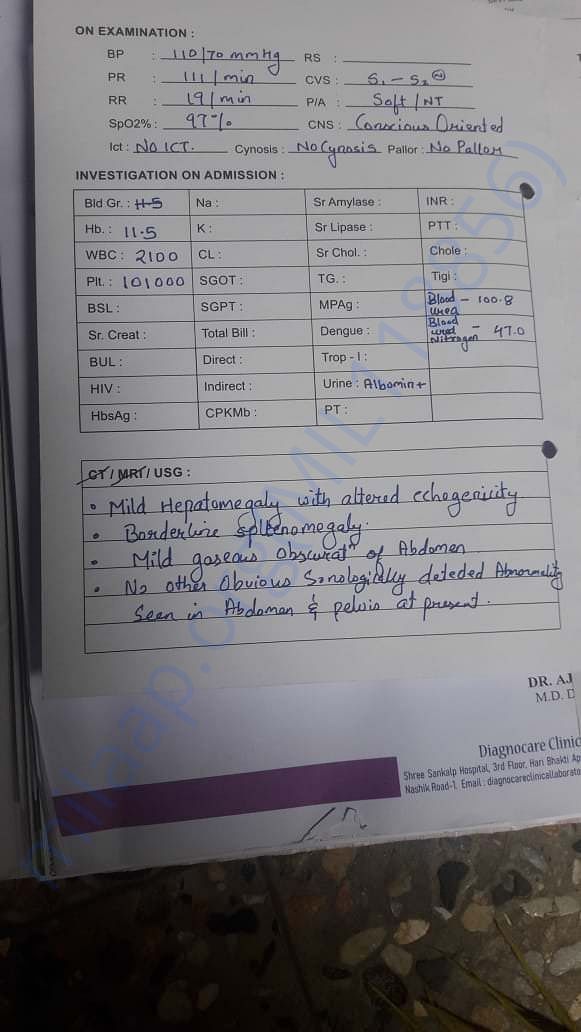 ON EXAMINATION :
BP : 110/70 mmHg RS :
PR : 111/min CVS : S1-S2 (N)
RR : 19/min P/A : Soft/NT
SpO2% : 97% CNS : Conscious Oriented
Ict : No ICT. Cynosis : No Cynosis Pallor : No Pallor
INVESTIGATION ON ADMISSION :
Bld Gr. : 11.5 Na : Sr Amylase : INR :
Hb. : 11.5 K : Sr Lipase : PTT :
WBC : 2100 CL : Sr Chol. : Chole :
Plt. : 101000 SGOT : TG. : Tigi :
BSL : SGPT : MPAg : Blood urea - 100.8
Sr. Creat : Total Bill : Dengue : Blood ured Nitrogen - 47.0
BUL : Direct : Trop - I :
HIV : Indirect : Urine : Albomin+
HbsAg : CPKMb : PT :
CT / MRI / USG :
• Mild Hepatomegaly with altered echogenicity.
• Borderline splenomegaly.
• Mild gaseous obscuratn of Abdomen
• No other obvious Sonologically deteded Abnormality
Seen in Abdomen & pelvis at present.
DR. AJ
M.D. D
Diagnocare Clinic
Shree Sankalp Hospital, 3rd Floor, Hari Bhakti Ap
Nashik Road-1. Email : diagnocareclinicallaborato
milaap.org(MIL118856)